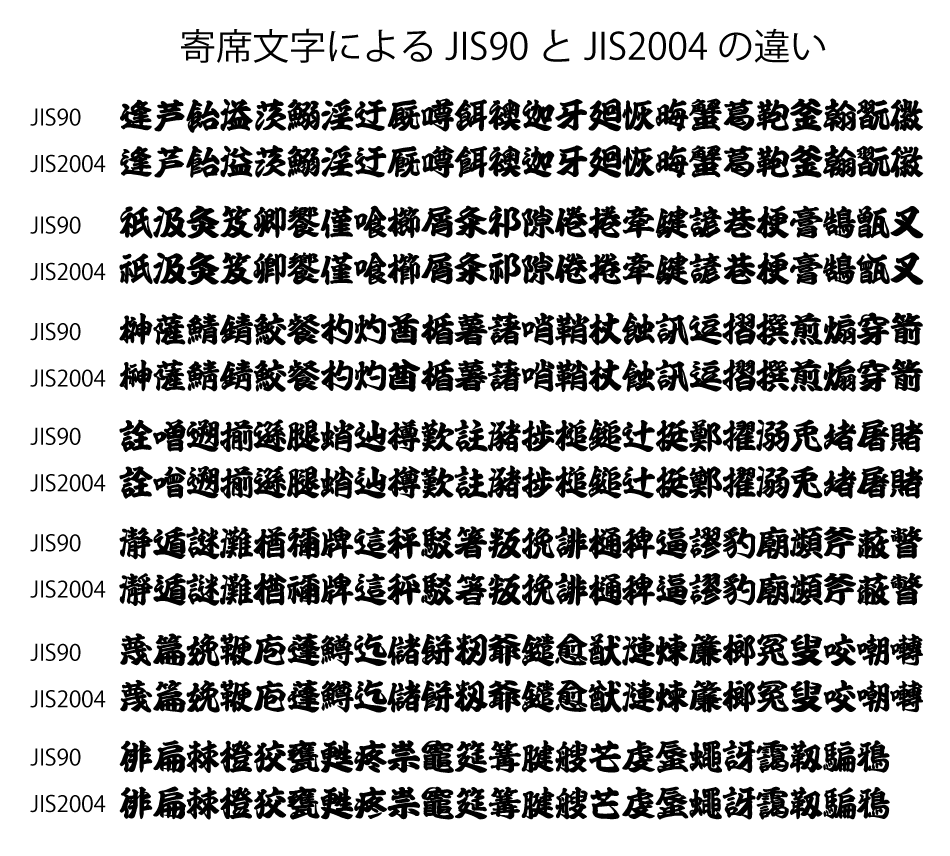 寄席文字による JIS90 と JIS2004 の違い
JIS90 逢芦飴溢茨鰯淫迂厩噂餌襖迦牙廻恢晦蟹葛鞄釜翰翫徽
JIS2004 逢芦飴溢茨鰯淫迂厩噂餌襖迦牙廻恢晦蟹葛鞄釜翰翫徽
JIS90 祇汲灸笈卿饗僅喰櫛屑粂祁隙倦捲牽鍵諺巷梗膏鵠甑叉
JIS2004 祇汲灸笈卿饗僅喰櫛屑粂祁隙倦捲牽鍵諺巷梗膏鵠甑叉
JIS90 榊薩鯖錆鮫餐杓灼酋楯薯藷哨鞘杖蝕訊逗摺撰煎煽穿箭
JIS2004 榊薩鯖錆鮫餐杓灼酋楯薯藷哨鞘杖蝕訊逗摺撰煎煽穿箭
JIS90 詮噌遡揃遜腿蛸辿樽歎註瀦捗槌鎚辻挺鄭擢溺兎堵屠賭
JIS2004 詮噌遡揃遜腿蛸辿樽歎註瀦捗槌鎚辻挺鄭擢溺兎堵屠賭
JIS90 瀞遁謎灘楢禰牌這秤駁箸叛挽誹樋稗逼謬豹廟瀕斧蔽瞥
JIS2004 瀞遁謎灘楢禰牌這秤駁箸叛挽誹樋稗逼謬豹廟瀕斧蔽瞥
JIS90 蔑篇娩鞭庖蓬鱒迄儲餅籾爺鑓愈猷漣煉簾榔冤叟咬嘲囀
JIS2004 蔑篇娩鞭庖蓬鱒迄儲餅籾爺鑓愈猷漣煉簾榔冤叟咬嘲囀
JIS90 徘扁棘橙狡甕甦疼祟竈筵篝腱艘芒虔蜃蠅訝靄靱騙鴉
JIS2004 徘扁棘橙狡甕甦疼祟竈筵篝腱艘芒虔蜃蠅訝靄靱騙鴉